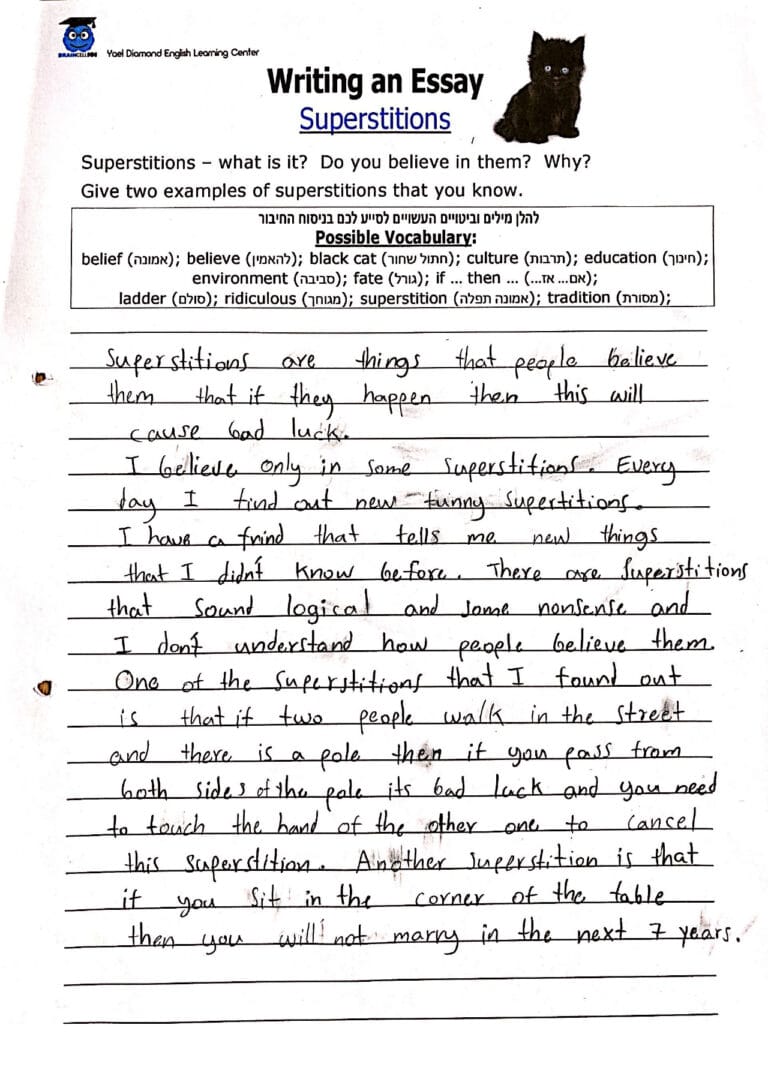 BRAINCELL
Yael Diamond English Learning Center
Writing an Essay
Superstitions
Superstitions – what is it? Do you believe in them? Why?
Give two examples of superstitions that you know.
להלן מילים וביטויים העשויים לסייע לכם בניסוח החיבור
Possible Vocabulary:
belief (אמונה); believe (להאמין); black cat (חתול שחור); culture (תרבות); education (חינוך);
environment (סביבה); fate (גורל); if ... then ... (אם... אז...);
ladder (סולם); ridiculous (מגוחך); superstition (אמונה תפלה); tradition (מסורת);
Superstitions are things that people believe
them that if they happen then this will
cause bad luck.
I believe only in some superstitions. Every
day I find out new funny supertitions.
I have a frind that tells me new things
that I didn't know before. There are superstitions
that sound logical and some nonsense and
I don't understand how people believe them.
One of the superstitions that I found out
is that if two people walk in the street
and there is a pole then if you pass from
both sides of the pole its bad luck and you need
to touch the hand of the other one to cancel
this superstition. Another superstition is that
if you sit in the corner of the table
then you will not marry in the next 7 years.